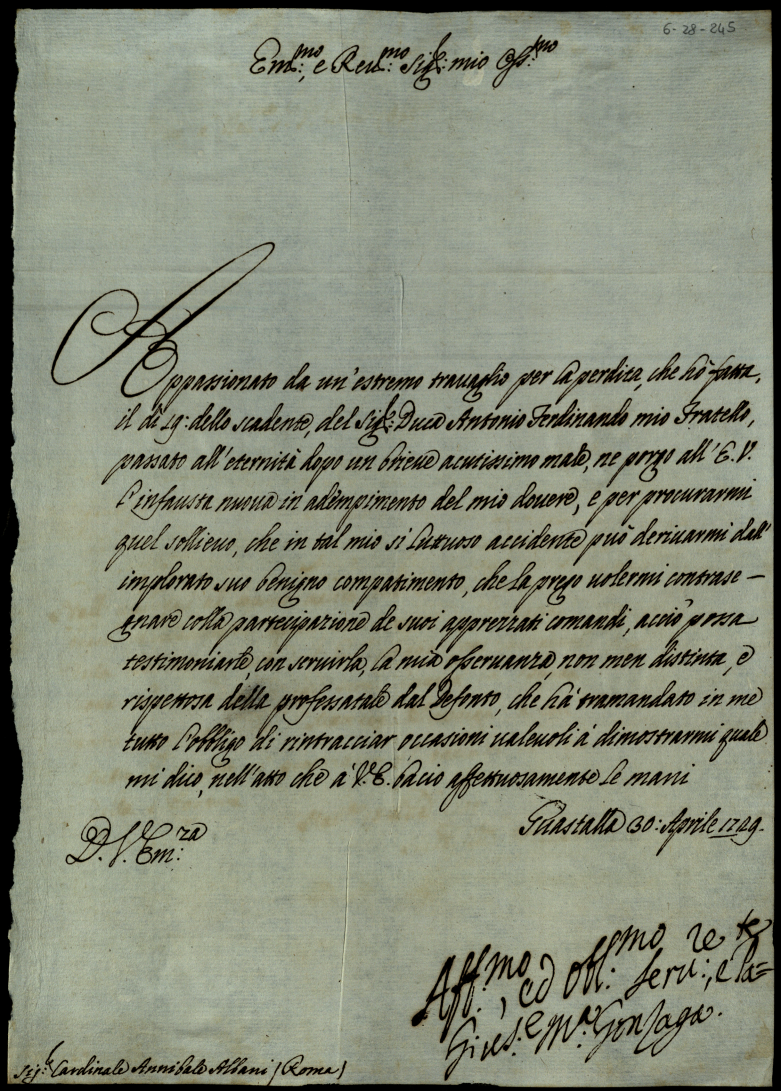 6-28-245
Em:mo, e Reu:mo Sig:r mio Oss:mo
Appassionato da un'estremo trauaglio per la perdita, che hò fatta,
il dì 19: dello scadente, del Sig:r Duca Antonio Ferdinando mio Fratello,
passato all'eternità dopo un brieue acutissimo male, ne porgo all'E.V.
l'infausta nuoua in adempimento del mio douere, e per procurarmi
quel sollieuo, che in tal mio sì luttuoso accidente può deriuarmi dall'
implorato suo benigno compatimento, che la prego uolermi contrase-
gnare colla partecipazione de suoi apprezzati comandi, acciò possa
testimoniarle, con seruirla, la mia osseruanza, non men distinta, e
rispettosa della professatale dal Defonto, che hà tramandato in me
tutto l'obbligo di rintracciar occasioni ualeuoli à dimostrarmi quale
mi dico, nell'atto che à V.E. bacio affettuosamente le mani
Guastalla 30: Aprile 1729.
D. V. Em:za
Aff:mo, ed Obl:mo Seru:re, e Pa=te
Gius:e M:a Gonzaga.
Sig:r Cardinale Annibale Albani (Roma)